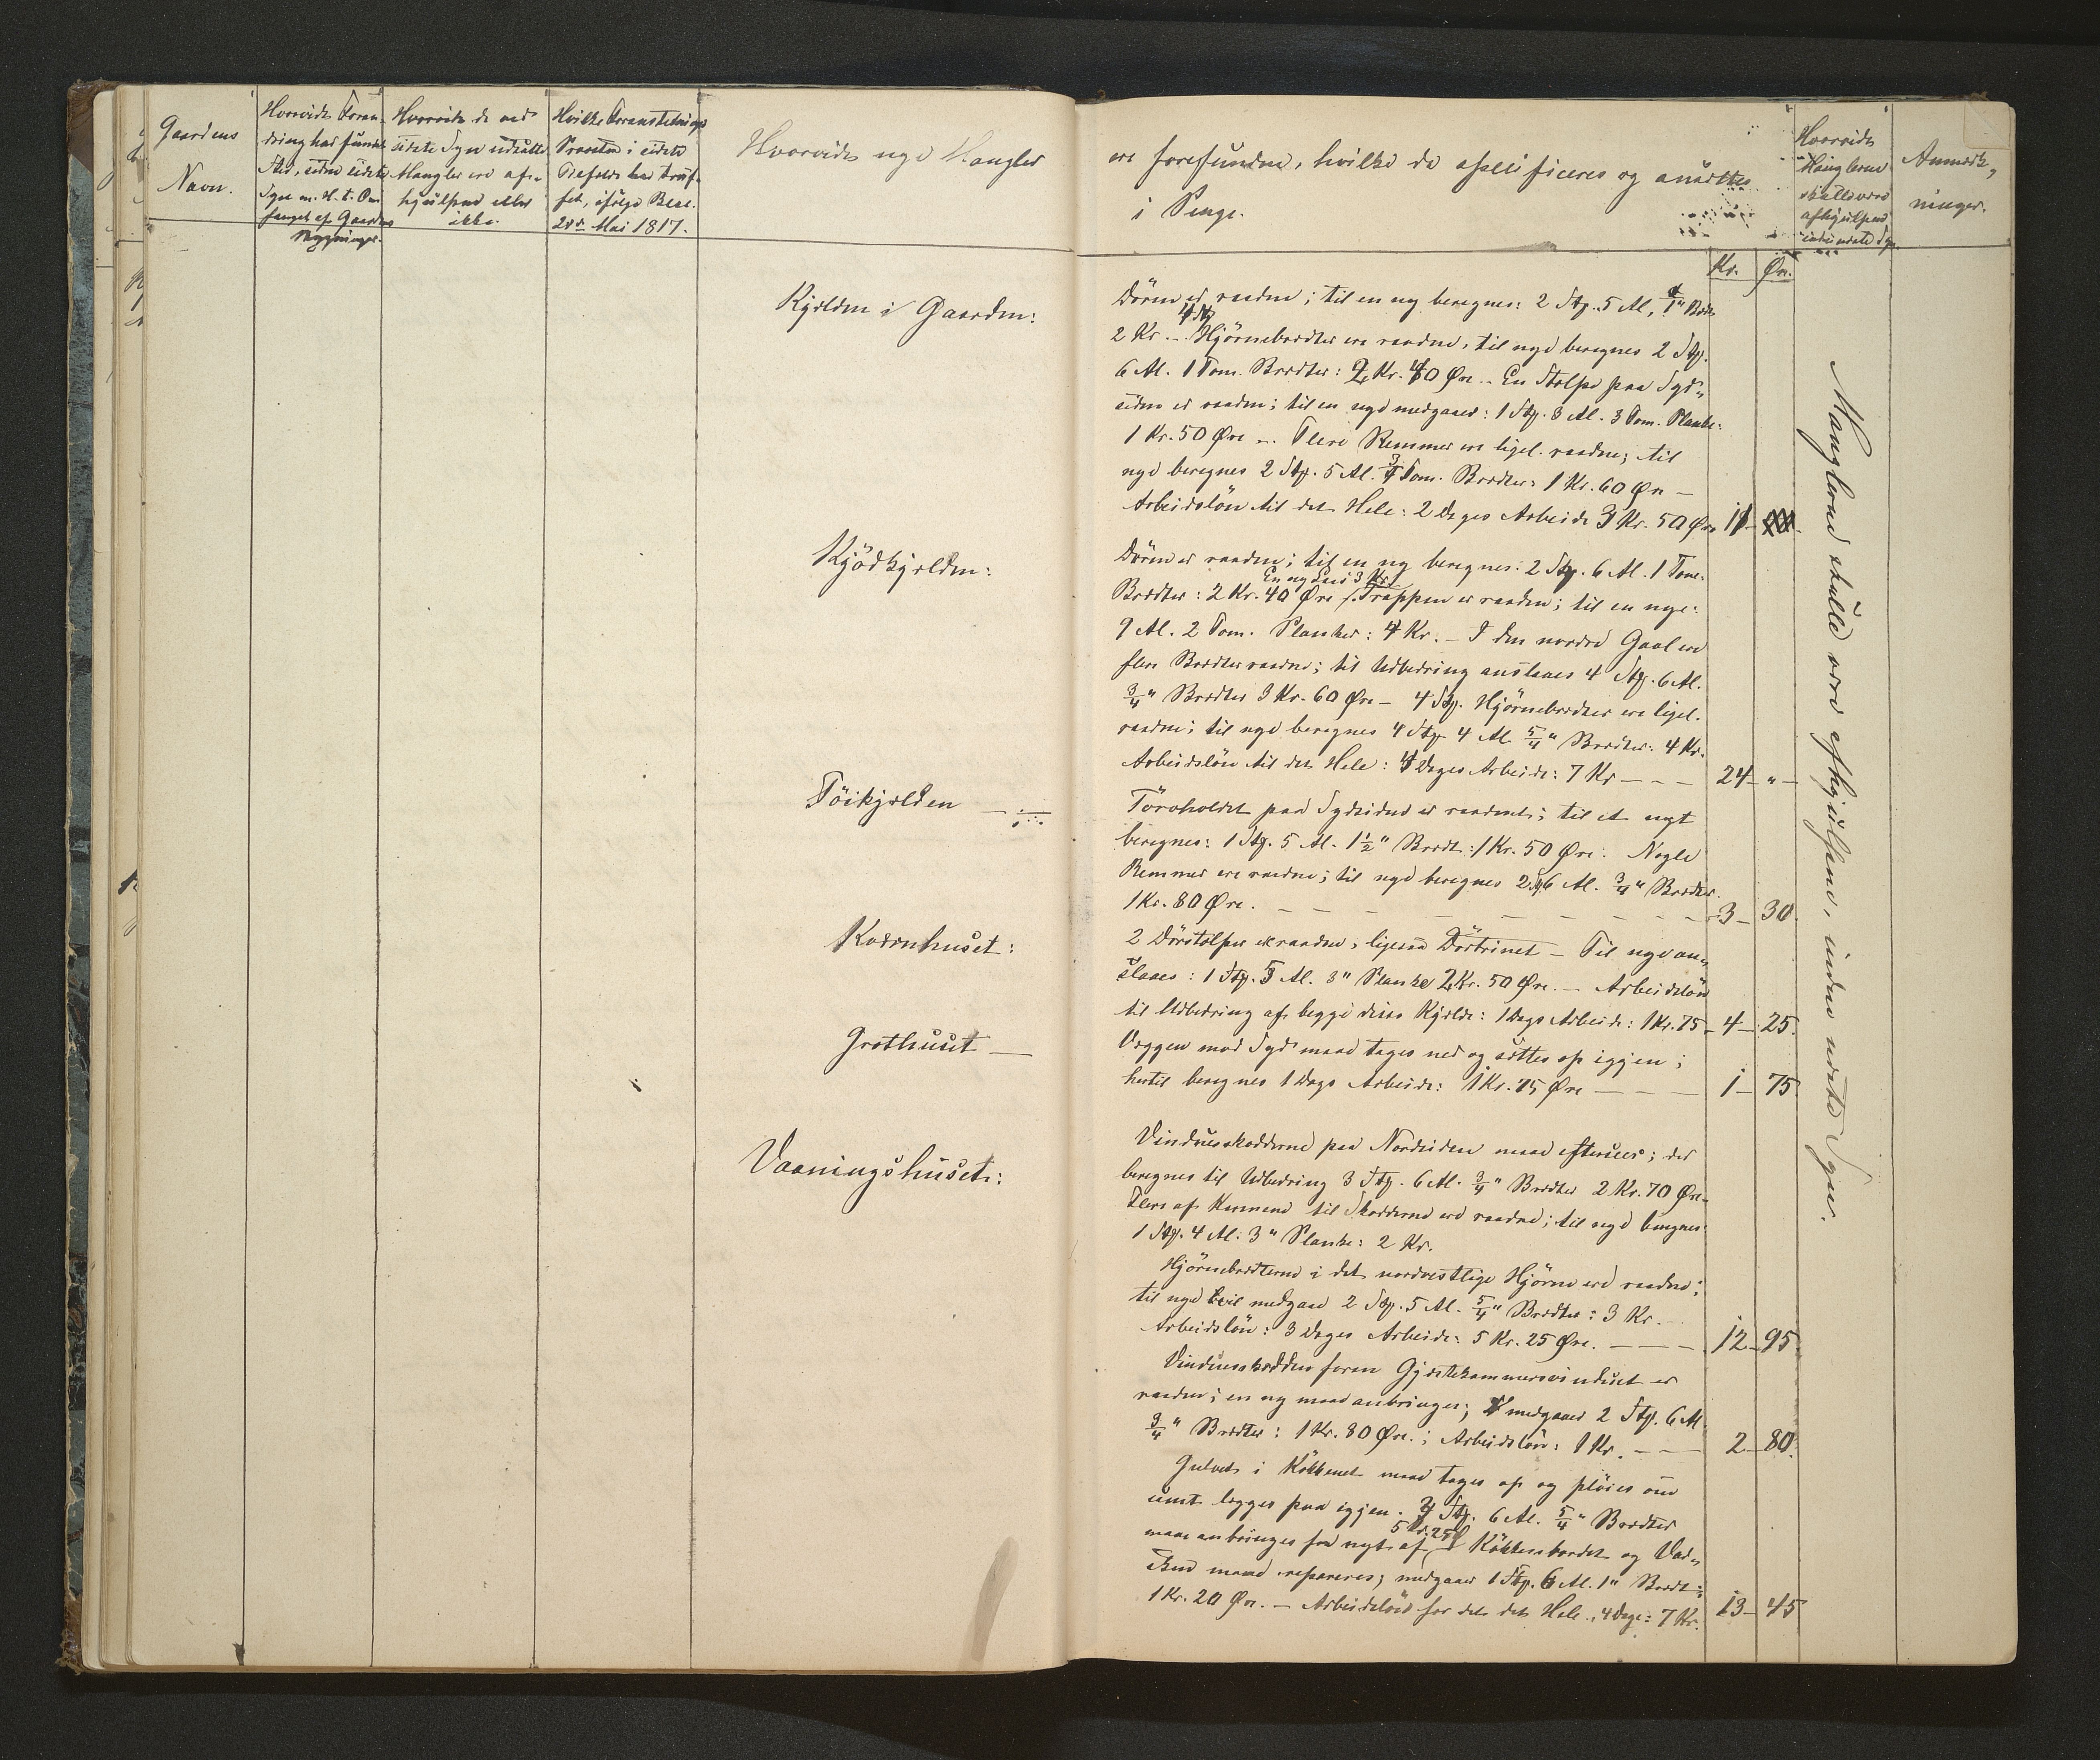 Gaardens
Navn.
Hvorvidt Foran-
dring har fundet
Sted, siden sidste
Syn m. H. t. Om
fanget af Gaardens
Bygninger.
Hvorvidt de ved
sidste Syn udsatte
Mangler ere af-
hjulpne eller
ikke.
Hvilke Foranstaltninger
Præsten i sidste
Tilfælde har truf-
fet, ifølge Besc.
28de Mai 1817.
Hvorvidt nye Mangler
ere forefundne, hvilke da specificeres og ansættes
i Penge.
Hvorvidt
Manglerne
skulle være
afhjulpne
inden næste Syn.
Anmærk-
ninger.
Kr. Øre.
Kjælderen i Gaarden:
Døren er raaden; til en ny beregnes: 2 Stp. 5 Al. 1" Bræder
2 Kr. - 4 Stp Hjörnebrædter ere raadne, til nye beregnes 2 Stp.
6 Al. 1 Tom. Brædter: 2 Kr. 40 Øre. - En Stolpe paa Syd-
siden er raaden; til en nye medgaaer: 1 Stp. 3 Al. 3 Tom. Planke:
1 Kr. 50 Øre - Flere Remmer ere ligel. raadne; til
nye beregnes 2 Stp. 5 Al. 3/4 Tom. Brædter: 1 Kr. 60 Øre -
Arbeidslön til det Hele: 2 Dages Arbeide 3 Kr. 50 Øre 11 -
Kjödkjælderen:
Døren er raaden; til en ny beregnes: 2 Stp. 6 Al. 1 Tom.
En ny Laas 3 Kr.
Brædter: 2 Kr. 40 Øre. Trappen er raaden; til en nye:
9 Al. 2 Tom. Planker: 4 Kr. - I den nordre Gavl ere
flere Brædter raadne; til Udbedring anslaaes 4 Stp. 6 Al.
3/4" Brædter 3 Kr. 60 Øre - 4 Stp. Hjörnebrædter ere ligel.
raadne; til nye beregnes 4 Stp 4 Al 5/4" Brædter: 4 Kr.
Arbeidslön til det Hele: 4 Dages Arbeide: 7 Kr - - - 24 - " -
Töikjælderen
paa Sydsiden er raadnet; til et nyt
beregnes: 1 Stp. 5 Al. 1 1/2" Brædt: 1 Kr. 50 Øre. Nogle
Remmer ere raadne; til nye beregnes 2 Stp 6 Al. 3/4" Brædter.
1 Kr. 80 Øre. - - - 3 - 30.
Kværnhuset:
2 Dörstolper er raadne, ligesaa Dörtrinet - Til nye an-
slaaes: 1 Stp. 5 Al. 3" Planke 2 Kr. 50 Øre. - Arbeidslön
til Udbedring af begge disse Kjælde: 1 Dags Arbeide: 1 Kr. 75 - 4 - 25.
Grothuset -
Væggen mod Syd maae tages ned og sættes op igjen;
hertil beregnes 1 Dags Arbeide: 1 Kr. 75 Øre - - - 1 - 75
Vaaningshuset:
Vinduesskodderne paa Nordsiden maae eftersees; det
beregnes til Udbedring 3 Stp. 6 Al. 3/4" Brædter 2 Kr. 70 Øre -
Flere af Karmene til Skodderne ere raadne; til nye beregnes
1 Stp. 4 Al. 3" Planke: 2 Kr.
Hjörnebrædterne i det nordvestlige Hjörne ere raadne;
til nye vil medgaae 2 Stp. 5 Al. 5/4" Brædter: 3 Kr. -
Arbeidslön: 3 Dages Arbeide: 5 Kr. 25 Øre. - - - 12 - 95.
Vinduesskodden foran Gjæstekammersvinduet er
raaden; en ny maae anbringes; medgaaer 2 Stp. 6 Al
3/4" Brædter: 1 Kr. 80 Øre.; Arbeidslön: 1 Kr. - - - 2 - 80.
Gulvet i Kökkenet maae tages op og plöies om
samt lægges paa igjen. 3 Stp. 6 Al. 5/4" Brædter
5 Kr. 25
maae anbringes for nyt af Kökkenbordet og Vad-
sken maae repareres; medgaaer 1 Stp. 6 Al. 1" Brædt:
1 Kr. 20 Øre. - Arbeidslön for det Hele, 4 Dage: 7 Kr. 13 - 45
Manglerne skulle være afhjulpne, inden næste Syn.